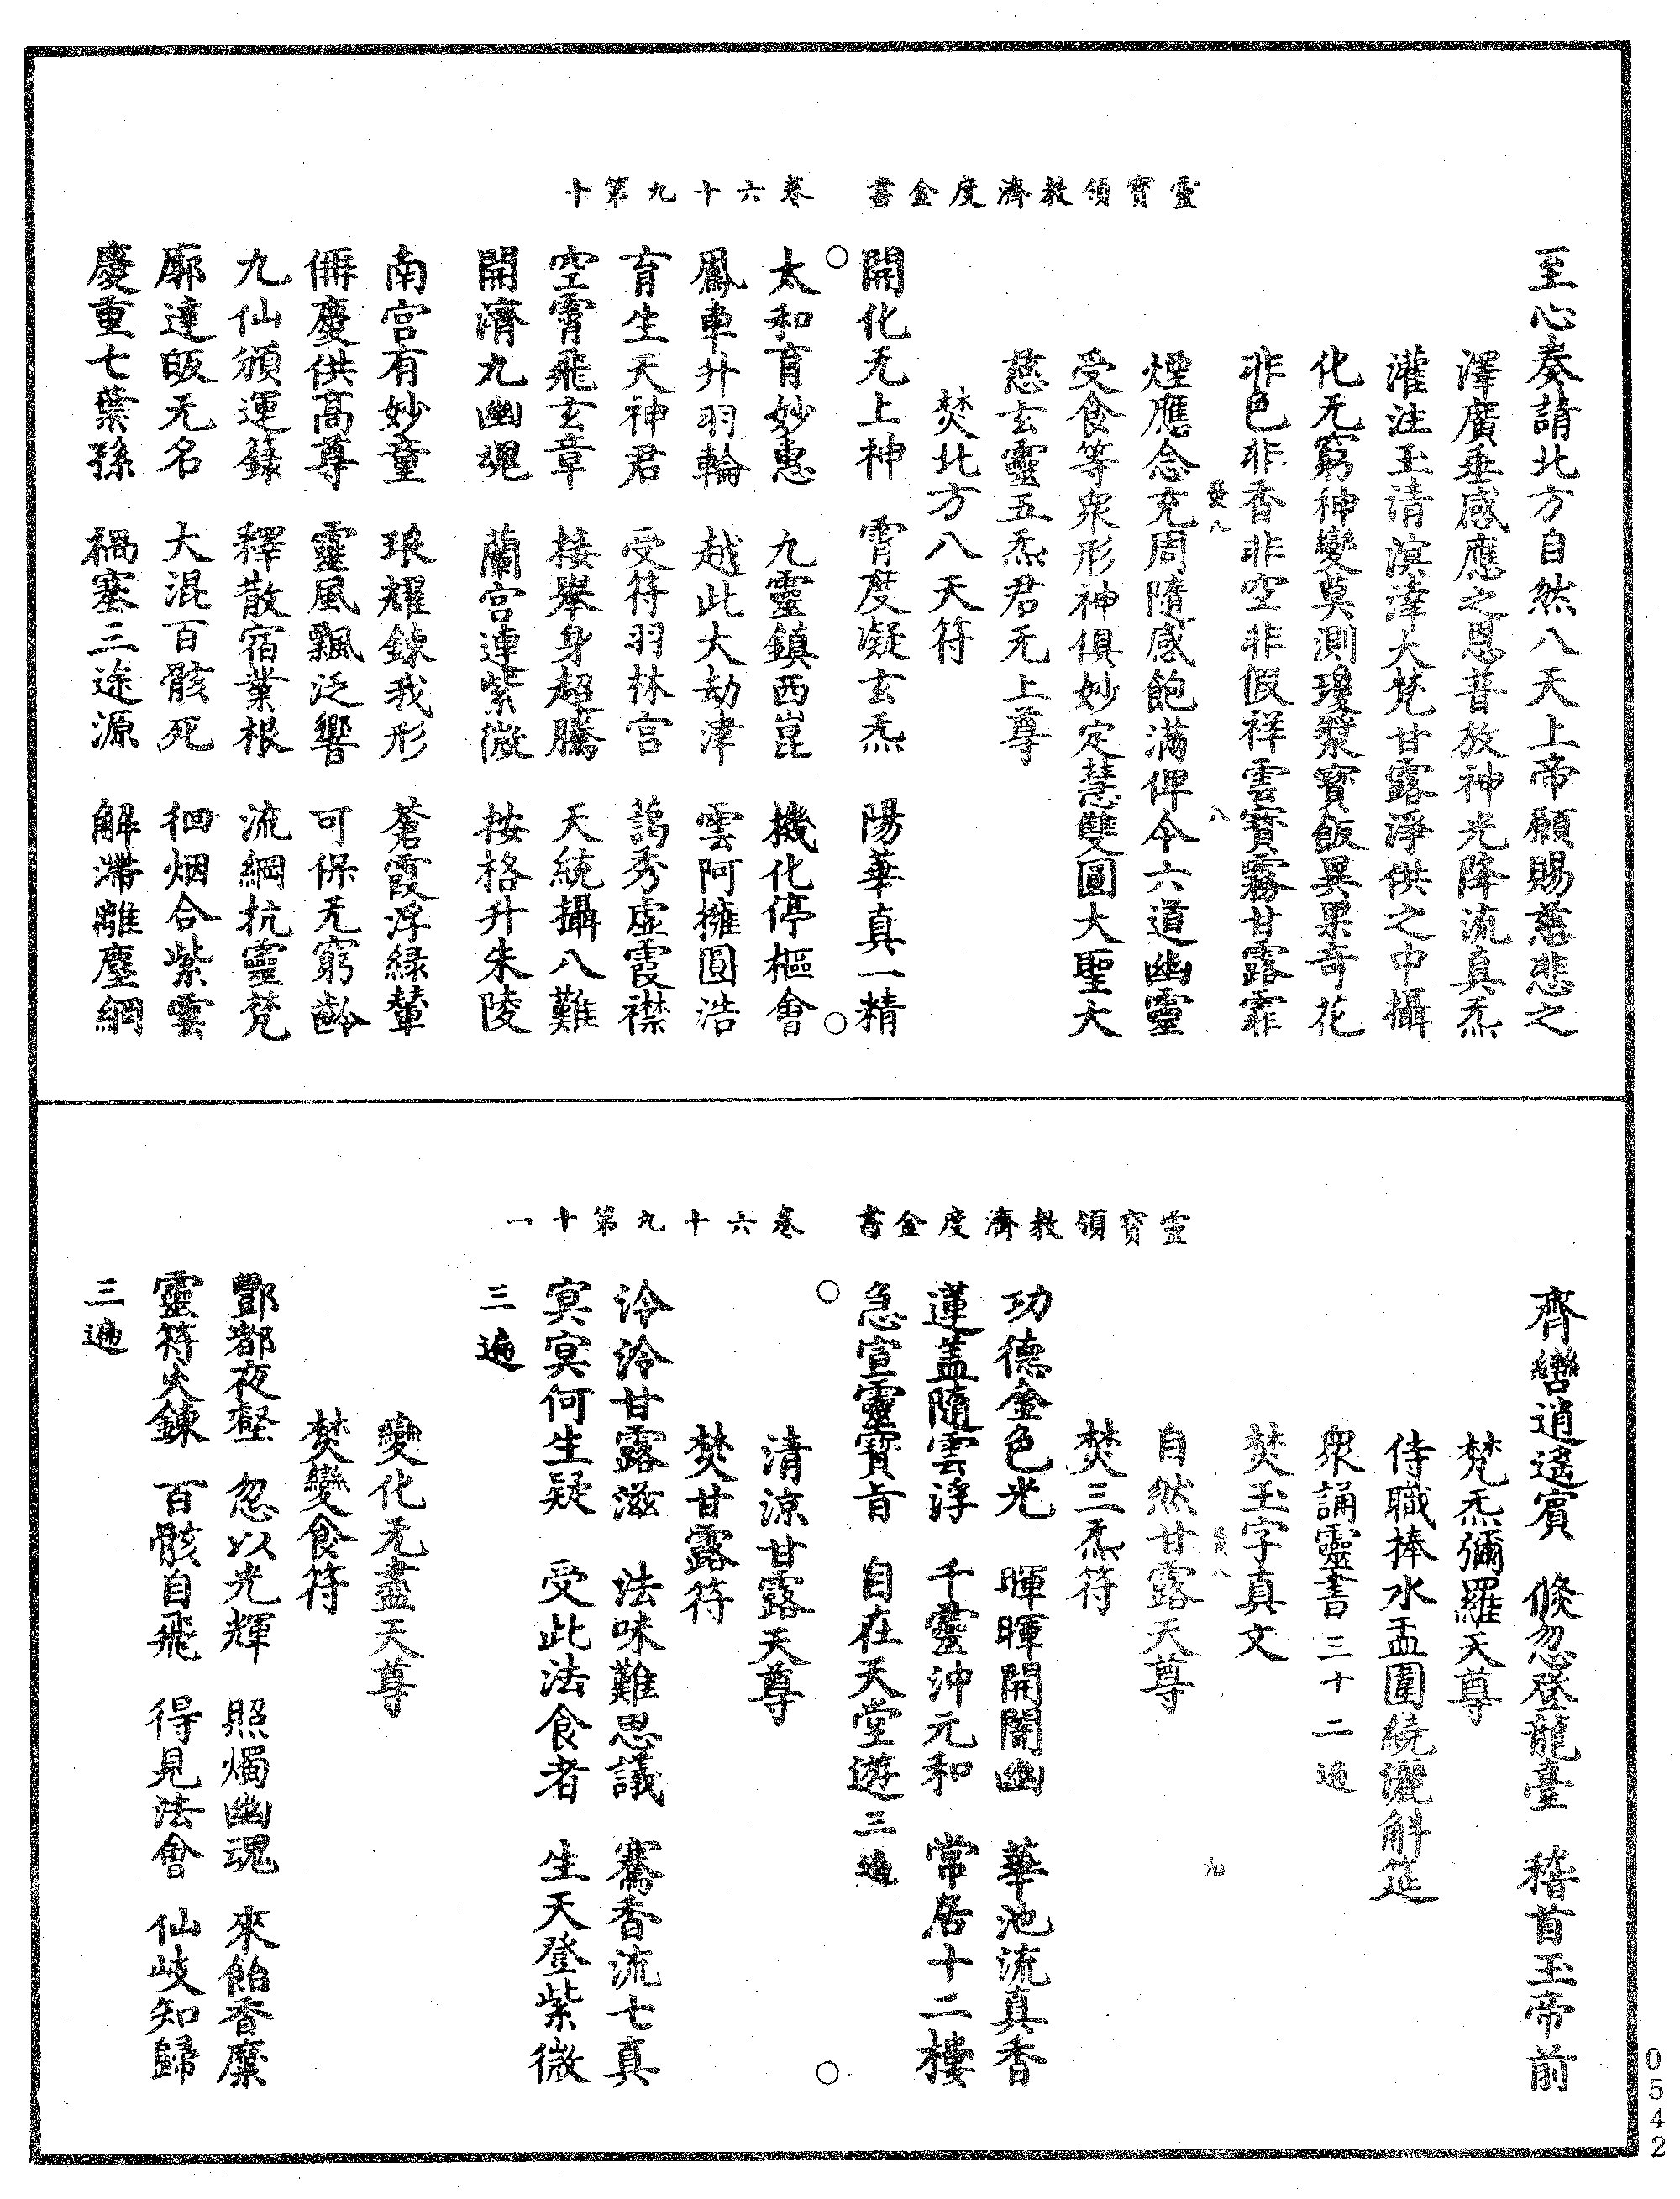 靈寶領教濟度金書　卷六十九第十
至心奏請北方自然八天上帝願賜慈悲之
澤廣垂感應之恩普放神光降流真炁
灌注玉清溟涬大梵甘露淨供之中攝
化无窮神變莫測瓊漿寶飯異果奇花
非色非香非空非假祥雲寶霧甘露霏
煙應念充周隨感飽滿俾令六道幽靈
受食等衆形神俱妙定慧雙圓大聖大
慈玄靈五炁君无上尊
焚北方八天符
開化无上神　霄度凝玄炁　陽華真一精
太和育妙惠　九靈鎮西崑　機化停樞會
鳳車升羽輪　越此大劫津　雲阿擁圓浩
育生天神君　受符羽林宫　藹秀虛霞襟
空霄飛玄章　接舉身超騰　天統攝八難
開濟九幽魂　蘭宫連紫微　按格升朱陵
南宫有妙童　琅耀鍊我形　蒼霞浮緑輦
僻慶供高尊　靈風飄泛響　可保无窮齡
九仙頒運籙　釋散宿業根　流綱抗靈梵
廓達皈无名　大混百骸死　徊烟合紫雲
慶重七葉孫　禍塞三途源　解滯離塵網
靈寶領教濟度金書　卷六十九第十一
齊轡逍遙賓　倏忽登龍臺　稽首玉帝前
梵炁彌羅天尊
侍職捧水盂圍繞灑斛筵
衆誦靈書三十二遍
焚玉字真文
自然甘露天尊
焚三炁符
功德金色光　暉暉開闇幽　華池流真香
蓮蓋隨雲浮　千靈沖元和　常居十二樓
急宣靈寶旨　自在天堂遊三遍
清涼甘露天尊
焚甘露符
泠泠甘露滋　法味難思議　騫香流七真
冥冥何生疑　受此法食者　生天登紫微
三遍
變化无盡天尊
焚變食符
酆都夜壑　忽以光輝　照燭幽魂　來飴香糜
靈符火鍊　百骸自飛　得見法會　仙岐知歸
三遍
0542